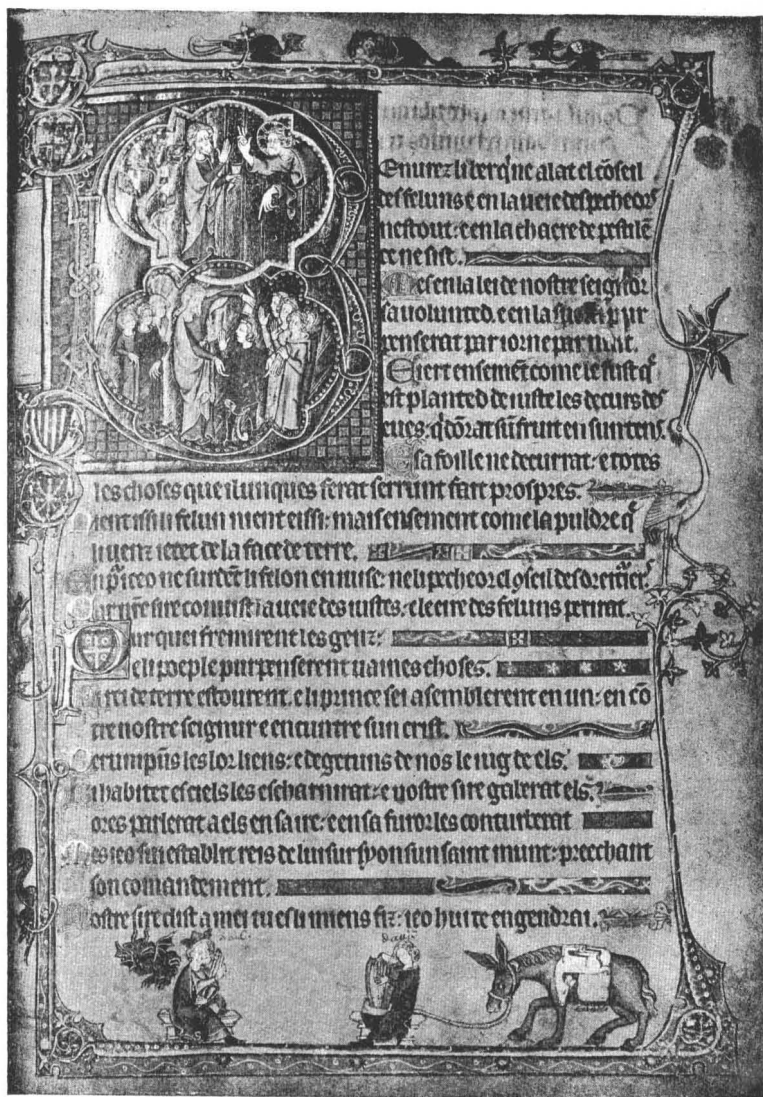 Enurez li ber q̇ ne alat el cõseil
des feluns e en la ueie des pecheors
nestout: e en la chaere de pestilẽ
ce ne sist.
Mes en la lei de nostre seignor
sa uolunted. e en la sue
penserat par iorn e par nuit.
E iert ensemẽt come le fust q̇
est planted de iuste les decurs des
eues: q̇ dõrat sũ fruit en sun tens.
E sa foille ne decurrat. e totes
les choses que il unques ferat serrunt fait prospres.
Nient issi li felun nient eissi: mais ensement come la puldre q̇
li uenz ietet de la face de terre.
En pͥceo ne surdẽt li felon en iuise: ne li pecheor el ꝯseil des dreituriers
Car nr̃e sire conuist la ueie des iustes. e le eire des feluns perirat.
Pur quei fremirent les genz:
e li poeple purpenserent uaines choses.
Li rei de terre estourent. e li prince sei asemblerent en un: en cõ
tre nostre seignur e encuntre sun crist.
Derumpũs les lor liens: e degetuns de nos le iug de els.
Ki habitet es ciels les escharnirat: e nostre sire gaberat els.
Lores parlerat a els en sa ire: e en sa furor les conturberat
Mes ieo sui establit reis de lui sur syon sun saint munt: preechant
son comandement.
Nostre sire dist a mei tu es li miens fiz: ieo hui te engendrai.